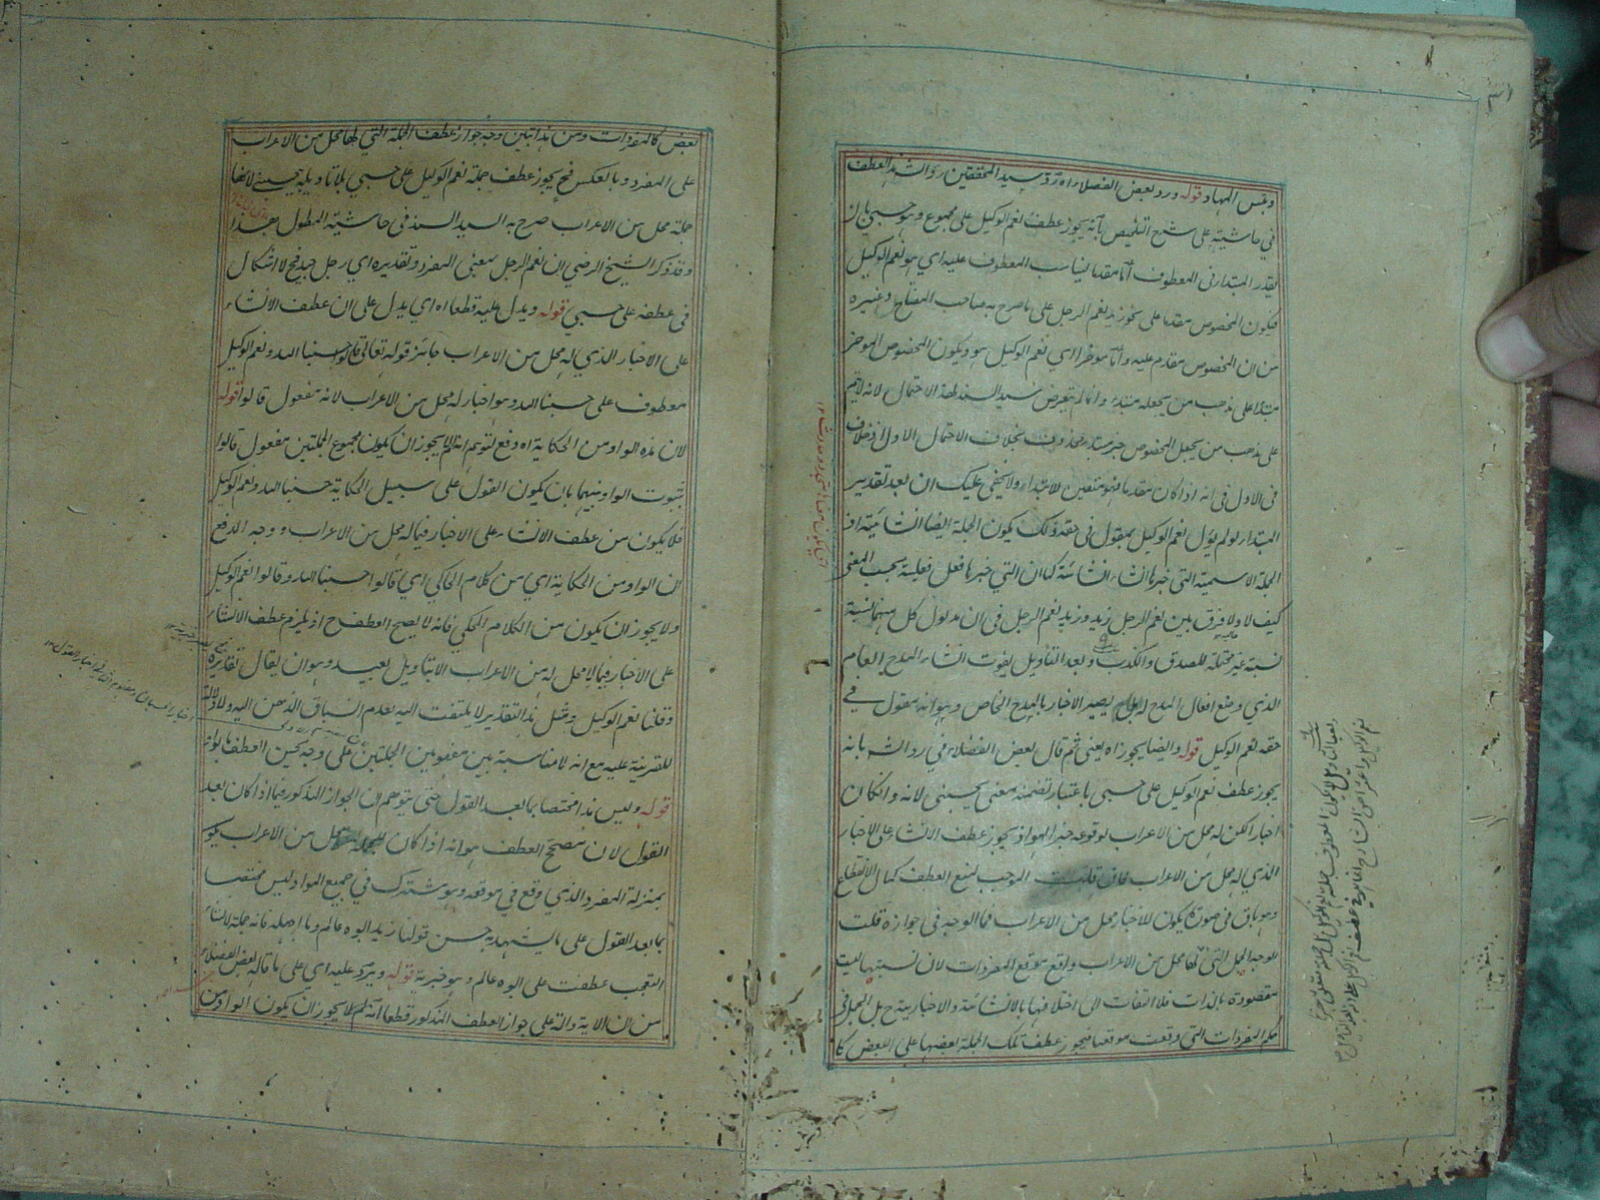 وبئس المهاد قوله ورد بعض الفضلاء اه رد سيد المحققين رد الشد العطف
في حاشيته على شرح التلخيص بانه يجوز عطف نعم الوكيل على مجموع وهو حسبي بان
يقدر المبتدأ في المعطوف اما مقدما ليناسب المعطوف عليه اي هو نعم الوكيل
فيكون المخصوص مقدما على نحو زيد نعم الرجل على ما صرح به صاحب المفتاح وغيره
من ان المخصوص مقدم عليه واما مؤخرا اي نعم الوكيل هو ويكون المخصوص المؤخر
مبتدا على مذهب من يجعله مبتدء وانما لم يتعرض سيد السند لهذا الاحتمال لانه لا يتم
على مذهب من يجعل المخصوص خبر مبتدا محذوف بخلاف الاحتمال الاول اذ خلاف
في الاول في انه اذا كان مقدما فهو متعين للابتداء ولا يخفى عليك ان بعد تقدير
المبتدأ لو لم يؤل نعم الوكيل بمقول في حقه ذلك يكون الجملة ايضا انشائية اذ
الجملة الاسمية التي خبرها انشاء انشائية كما ان التي خبرها فعل فعلية بحسب المعنى
كيف لا ولا فرق بين نعم الرجل زيد وزيد نعم الرجل في ان مدلول كل منهما نسبة
نسبة غير محتملة للصدق والكذب وبعد التأويل يفوت انشاء المدح العام
الذي وضع افعال المدح له بل يصير الاخبار بالمدح الخاص وهو انه مقول في
حقه نعم الوكيل قوله وايضا يجوز اه يعني ثم قال بعض الفضلاء في رد الش بانه
يجوز عطف نعم الوكيل على حسبي باعتبار تضمنه معنى يحسبني لانه وان كان
اخبارا لكن له محل من الاعراب لوقوعه خبرا لهو اذ يجوز عطف الانشاء على الاخبار
الذي له محل من الاعراب فان قلت الموجب لمنع العطف كمال الانقطاع
وهو باق في صورة يكون للاخبار محل من الاعراب فما الوجه في جوازه قلت
الوجه الجمل التي لها محل من الاعراب واقع موقع المفردات لان نسبتها ليست
مقصودة بالذات فلا التفات الى اختلافها بالانشائية والاخبارية ح بل الجمل في
حكم المفردات التي وقعت موقعها فيجوز عطف تلك الجملة بعضها على البعض كا
بعض كالمفردات ومن هذا تبين وجه جواز عطف الجملة التي لها محل من الاعراب
على المفرد وبالعكس فح يجوز عطف جملة نعم الوكيل على حسبي بلا تاويله بيحسبني لانها
جملة محل من الاعراب صرح به السيد السند في حاشية المطول هذا
وقد ذكر الشيخ الرضي ان نعم الرجل بمعنى المفرد وتقديره اي رجل جيد فح لا اشكال
في عطفه على حسبي قوله ويدل عليه قطعا اه اي يدل على ان عطف الانشاء
على الاخبار الذي له محل من الاعراب جائز قوله تعالى قالوا حسبنا الله ونعم الوكيل
معطوف على حسبنا الله وهو اخبار له محل من الاعراب لانه مفعول قالوا قوله
لان هذه الواو من الحكاية اه دفع لتوهم انه لم لا يجوز ان يكون مجموع الجملتين مفعول قالوا
بثبوت الواو بينهما بان يكون القول على سبيل الحكاية حسبنا الله ونعم الوكيل
فلا يكون من عطف الانشاء على الاخبار فيما له محل من الاعراب ووجه الدفع
ان الواو من الحكاية اي من كلام الحاكي اي قالوا حسبنا الله وقالوا نعم الوكيل
ولا يجوز ان يكون من الكلام المحكي فانه لا يصح العطف ح اذ يلزم عطف الانشاء
على الاخبار فيما لا محل له من الاعراب الا بتاويل بعيد وهو ان يقال تقديره
وقلنا نعم الوكيل ومثل هذا التقدير لا يلتفت اليه لعدم انسباق الذهن اليه ولا دلالة
للقرينة عليه مع انه لا مناسبة بين مفهومين الجملتين على وجه يحسن العطف بالواو
قوله وليس هذا مختصا بما بعد القول حتى يتوهم ان الجواز المذكور فيما اذا كان بعد
القول لان مصحح العطف هو انه اذا كان للجملة محل من الاعراب يكو
بمنزلة المفرد الذي وقع في موقعه وهو مشترك في جميع المواد ليس مختصا
بما بعد القول على ما يشهد به حسن قولنا زيد ابوه عالم وما اجهله فانه جملة لانشاء
التعجب عطفت على ابوه عالم وهو خبرية قوله ويرد عليه اي على ما قاله بعض الفضلاء
من ان الاية دالة على جواز العطف المذكور قطعا انه لم لا يجوز ان يكون الواو من